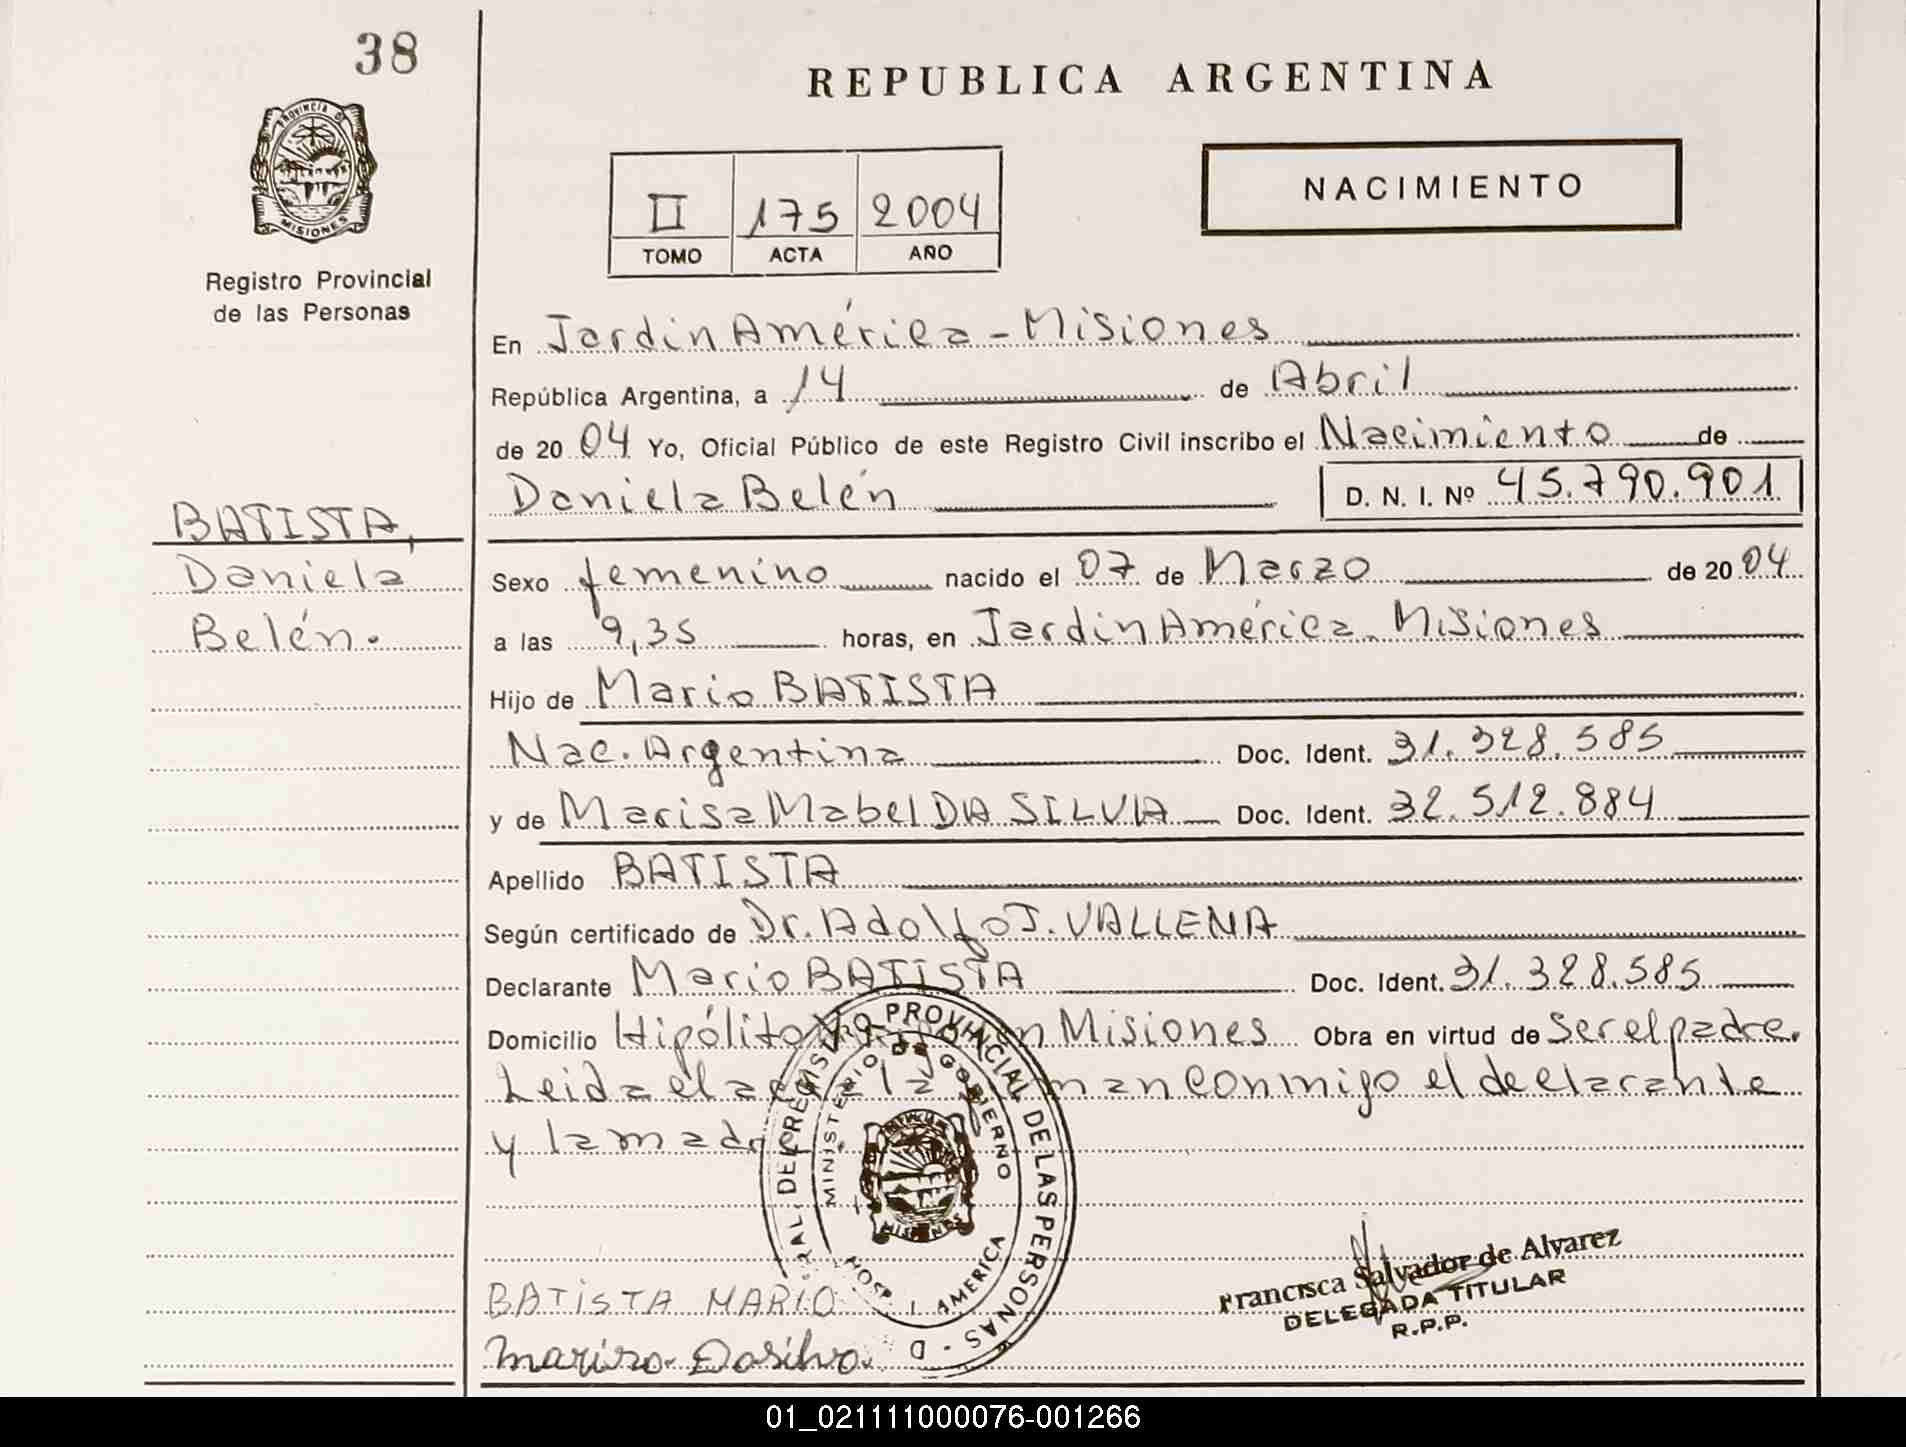 38
REPUBLICA ARGENTINA
PROVINCIA DE
MISIONES
Registro Provincial
de las Personas
NACIMIENTO
II 175 2004
TOMO ACTA AÑO
En Jardin América - Misiones
República Argentina, a 14 de Abril
de 2004 Yo, Oficial Público de este Registro Civil inscribo el Nacimiento de
Daniela Belén D. N. I. Nº 45.790.901
BATISTA,
Daniela
Belén.
Sexo femenino nacido el 07 de Marzo de 2004
a las 9,35 horas, en Jardin América - Misiones
Hijo de Mario BATISTA
Nac. Argentina Doc. Ident. 31.328.585
y de Marisa Mabel DA SILVA Doc. Ident. 32.512.884
Apellido BATISTA
Según certificado de Dr. Adolfo J. VALLENA
Declarante Mario BATISTA Doc. Ident. 31.328.585
Domicilio Hipólito Misiones Obra en virtud de ser el padre.
Leida el acta la conmigo el declarante
y la madre.
REGISTRO PROVINCIAL DE LAS PERSONAS
MINISTERIO DE GOBIERNO
MISIONES
HOSP. J. AMERICA
BATISTA MARIO
Marisa Dasilva.
Francisca Salvador de Alvarez
DELEGADA TITULAR
R.P.P.
01_021111000076-001266